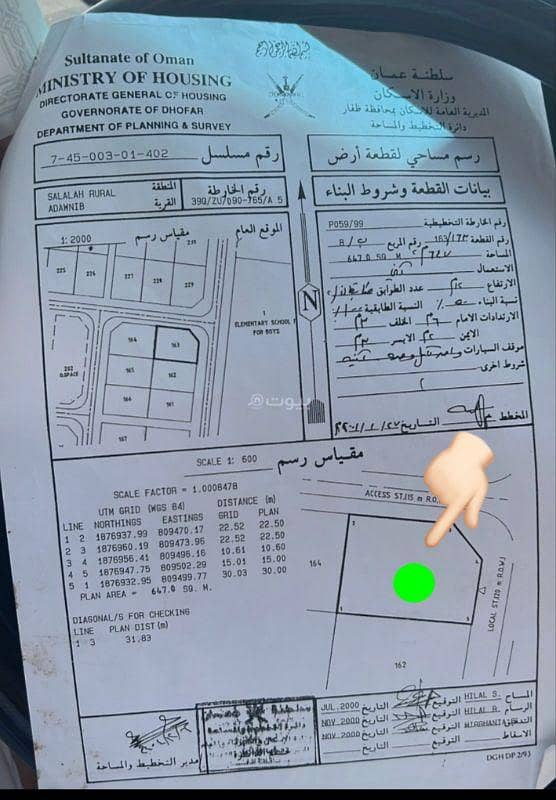 Sultanate of Oman
MINISTRY OF HOUSING
DIRECTORATE GENERAL OF HOUSING
GOVERNORATE OF DHOFAR
DEPARTMENT OF PLANNING & SURVEY
سلطنة عمان
وزارة الإسكان
المديرية العامة للإسكان بمحافظة ظفار
دائرة التخطيط والمساحة
رقم مسلسل 7-45-003-01-402
رسم مساحي لقطعة أرض
المنطقة SALALAH RURAL
القرية ADAWNIB
رقم الخارطة
39Q/ZU/090-765/A 5
بيانات القطعة وشروط البناء
الموقع العام
مقياس رسم 1: 2000
225
226
228
229
164
163
165
162
166
161
167
202
O.SPACE
1
ELEMENTARY SCHOOL
FOR BOYS
N
رقم الخارطة التخطيطية P059/99
رقم القطعة 163/١٦٣ رقم المربع
المساحة 647.0 SQ. M. ٦٤٧
الاستعمال
الارتفاع عدد الطوابق
نسبة البناء النسبة الطابقية
الارتدادات الامام الخلف
الايمن الايسر
موقف السيارات
شروط اخرى
المخطط التاريخ
بيوت
مقياس رسم SCALE 1: 600
SCALE FACTOR = 1.0008478
UTM GRID (WGS 84) DISTANCE (m)
LINE NORTHINGS EASTINGS GRID PLAN
1 2 1876937.99 809470.17 22.52 22.50
2 3 1876960.19 809473.96 22.52 22.50
3 4 1876956.41 809496.16 10.61 10.60
4 5 1876947.75 809502.29 15.01 15.00
5 1 1876932.95 809499.77 30.03 30.00
PLAN AREA = 647.0 SQ. M.
DIAGONAL/S FOR CHECKING
LINE PLAN DIST(m)
1 3 31.83
ACCESS ST.(15 m R.O.
LOCAL ST.(20 m R.O.W)
164
162
المساح HILAL S. التوقيع التاريخ JUL.2000
الرسام HILAL R. التوقيع التاريخ NOV 2000
MIRGHANI التوقيع التاريخ NOV 2000
الاسقاط التوقيع التاريخ
مدير التخطيط والمساحة
DGH DP 2/93